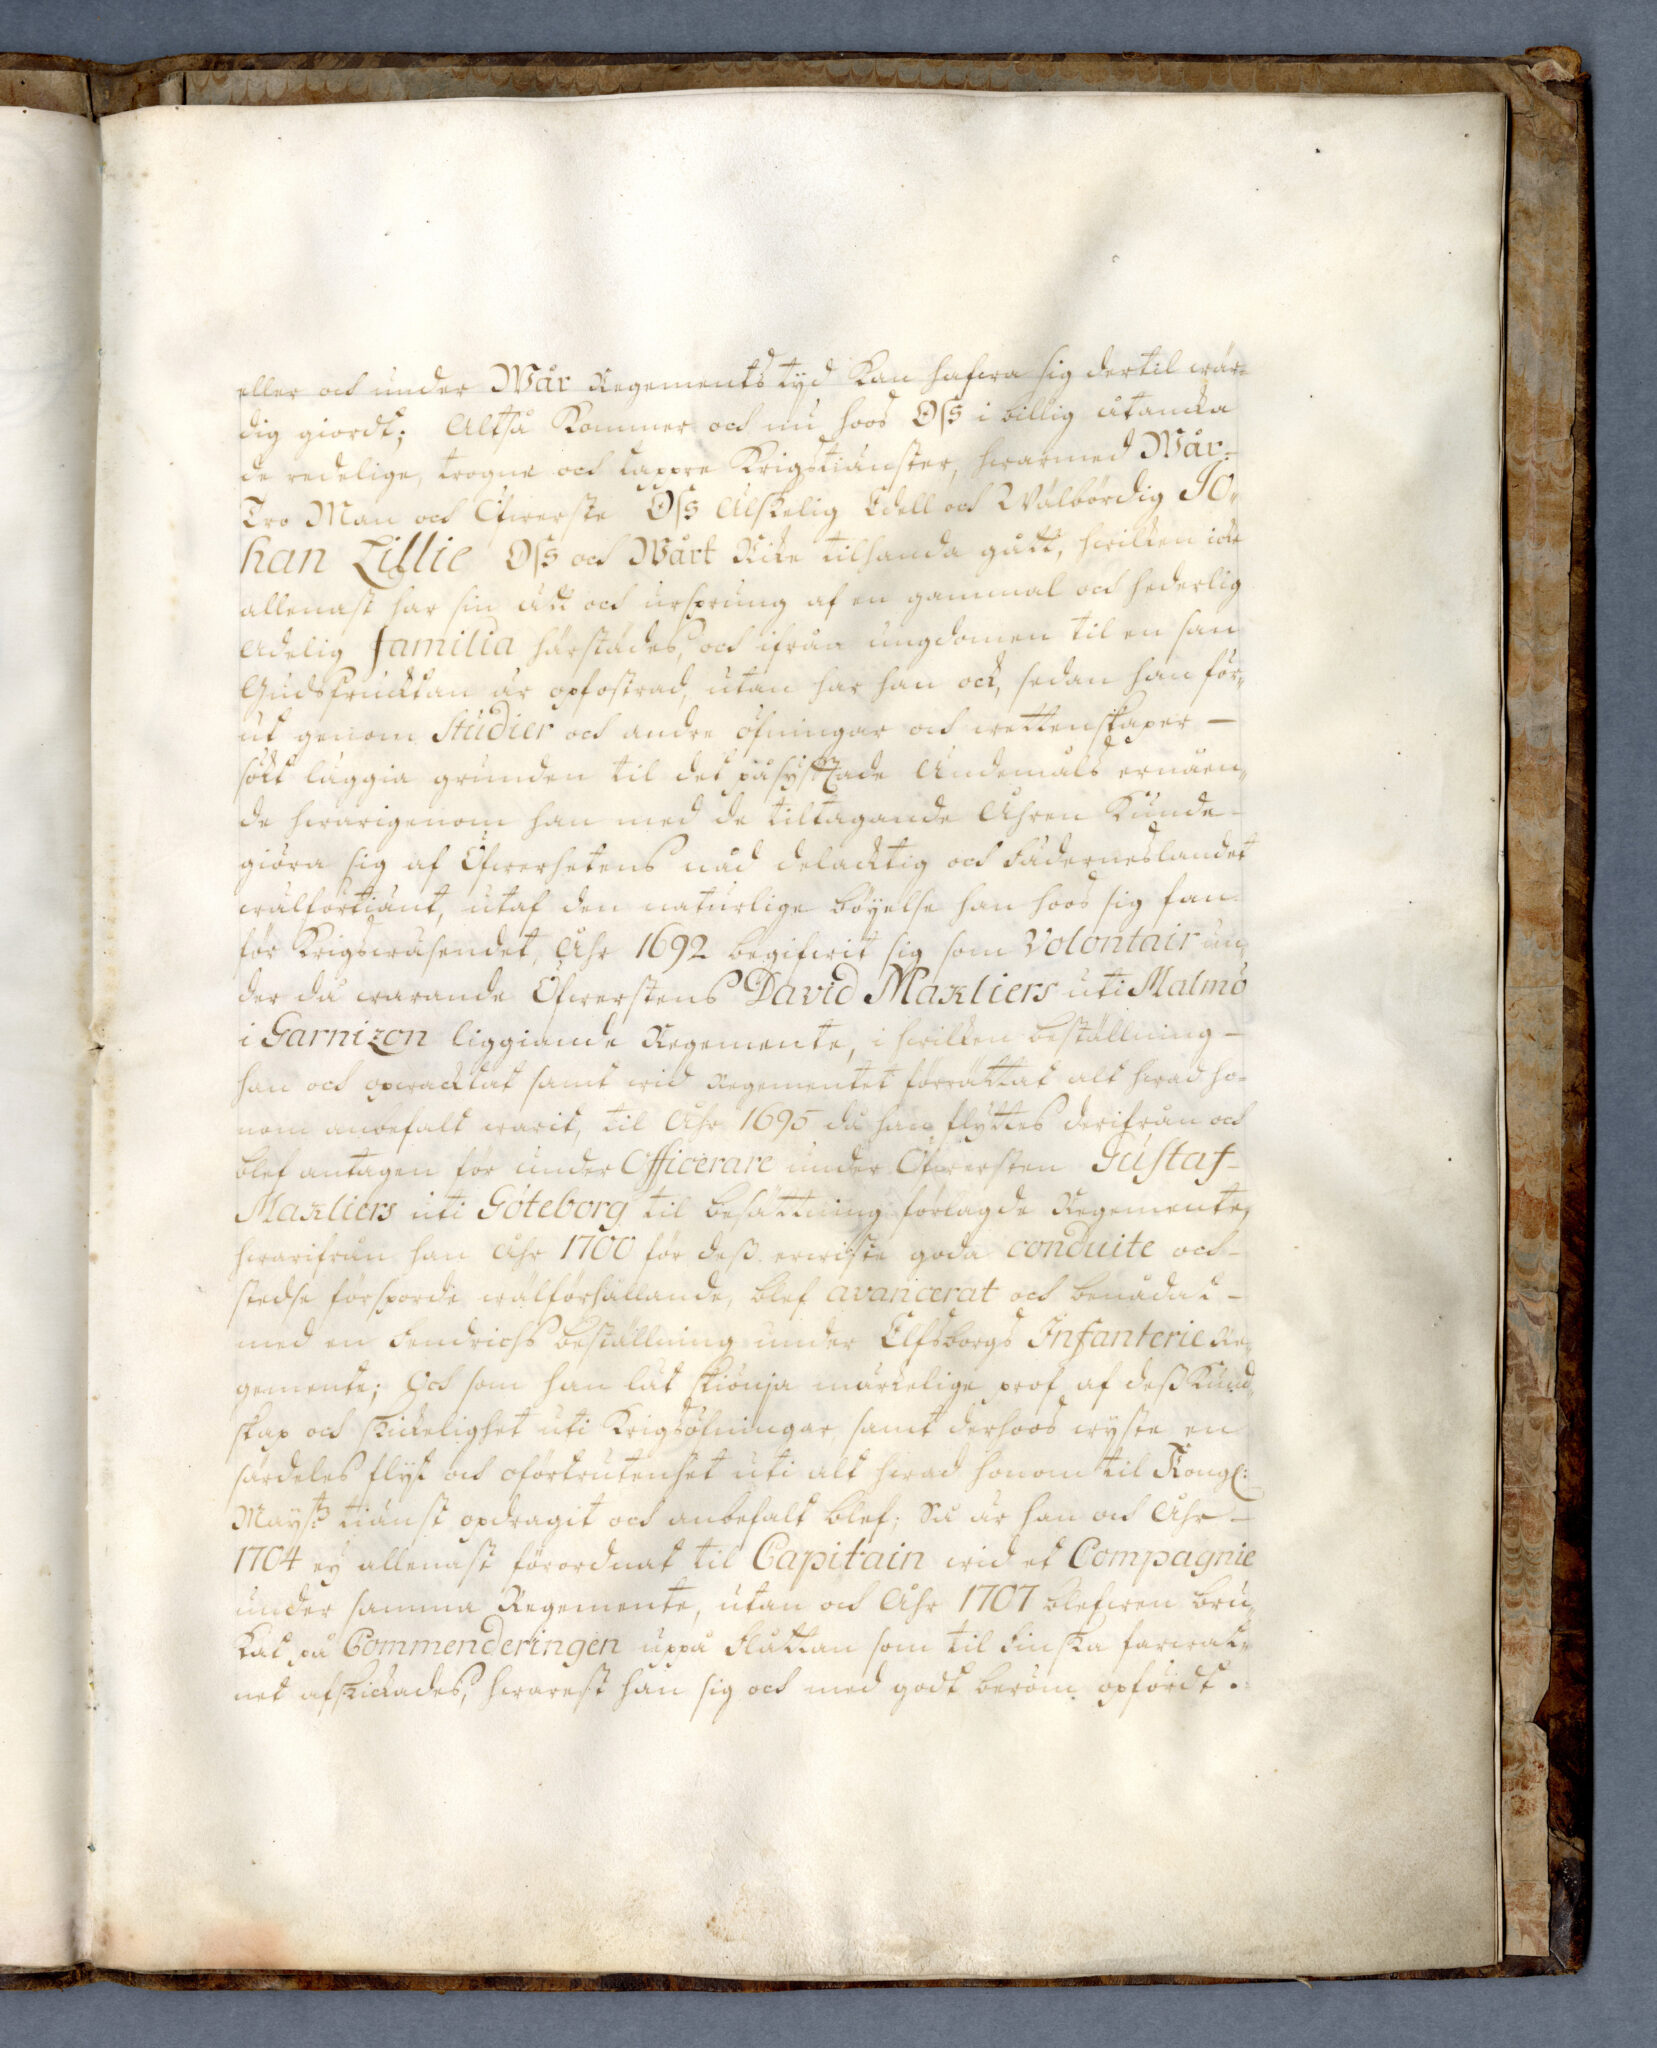 eller och under Wår Regementz tyd kan hafwa sig dertil wär-
dig giordt; Altså kommer och nu hoos Oss i billig åtancka
de redelige, trogne och tappre Krigstiänster, hwarmed Wår-
Tro Man och Öfwerste Oss Älskelig Edell och Wälbördig Jo-
han Lillie Oss och Wårt Rike tilhanda gått, hwilken icke
allenast har sin ätt och ursprung af en gammal och hederlig
Adelig familia härstädes, och ifrån ungdomen til en san
Gudsfrucktan är opfostrad, utan har han ock, sedan han för-
ut genom Studier och andre öfningar och wettenskaper -
sökt läggia grunden til det påsyftade Ändemåls ernåen-
de hwarigenom han med de tiltagande Åhren kunde -
giöra sig af Öfwerhetens nåd delacktig och Fäderneslandet
wälfortiänt, utaf den naturlige böyelse han hoos sig fan
för Krigswäsendet, Åhr 1692 begifwit sig som Volontair un-
der då warande Öfwerstens David Makliers uti Malmö
i Garnizon liggiande Regemente, i hwilken beställning -
han och opwacktat samt wid Regementet förrättat alt hwad ho-
nom anbefalt warit, til Åhr 1695 då han flyttes derifrån och
blef antagen för under Officerare under Öfwersten Gustaf-
Makliers uti Göteborg til besättning förlagde Regemente,
hwarifrån han Åhr 1700 för dess erwiste goda conduite och -
stedse försporde wälförhållande, blef avancerat och benådat -
med en Fendrichs beställning under Elfsborgs Infanterie Re-
gemente; Och som han låt skiönja märkelige prof af dess Kund-
skap och skickelighet uti Krigsöfningar, samt derhoos wyste en
särdeles flyt och oförtrutenhet uti alt hwad honom til Kongl:
Mayst:s tiänst opdragit och anbefalt blef; Så är han och Åhr -
1704 ey allenast förordnat til Capitain wid et Compagnie
under samma Regemente, utan och Åhr 1707 blefwen bru-
kat på Commenderingen uppå Flåttan som til Finska farwat-
net afskickades, hwarest han sig och med godt beröm opfördt.